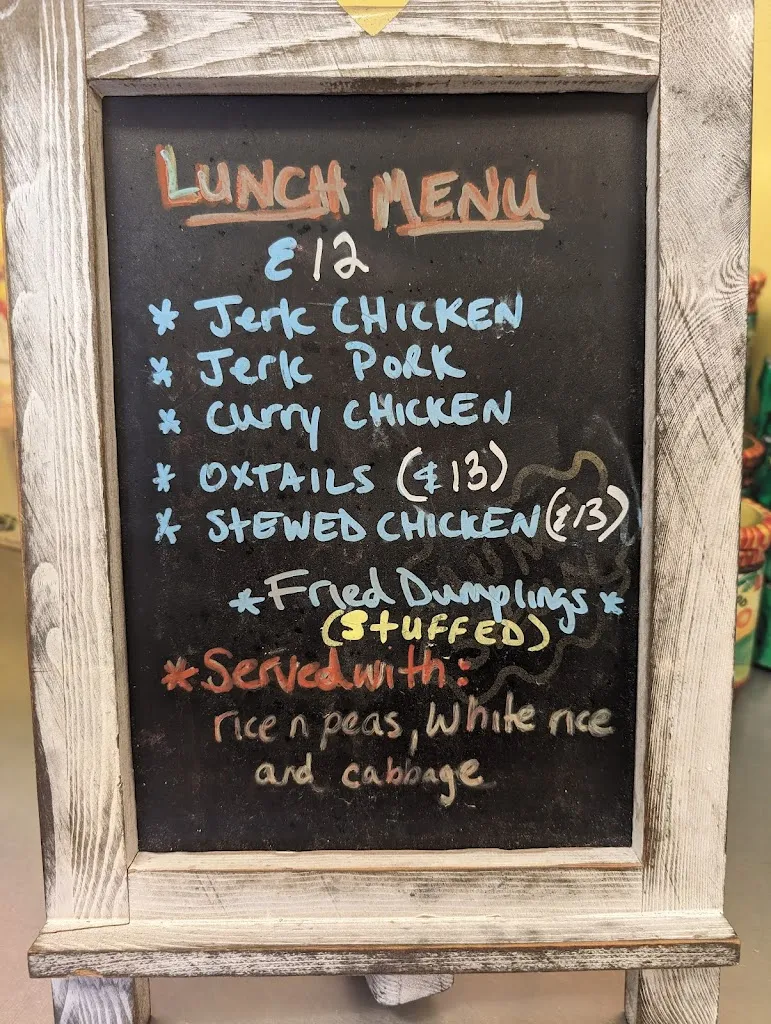 LUNCH MENU
£12
* Jerk CHICKEN
* Jerk PORK
* Curry CHICKEN
* OXTAILS (£13)
* STEWED CHICKEN (£13)
* Fried Dumplings *
(STUFFED)
* Served with:
rice n peas, White rice
and cabbage